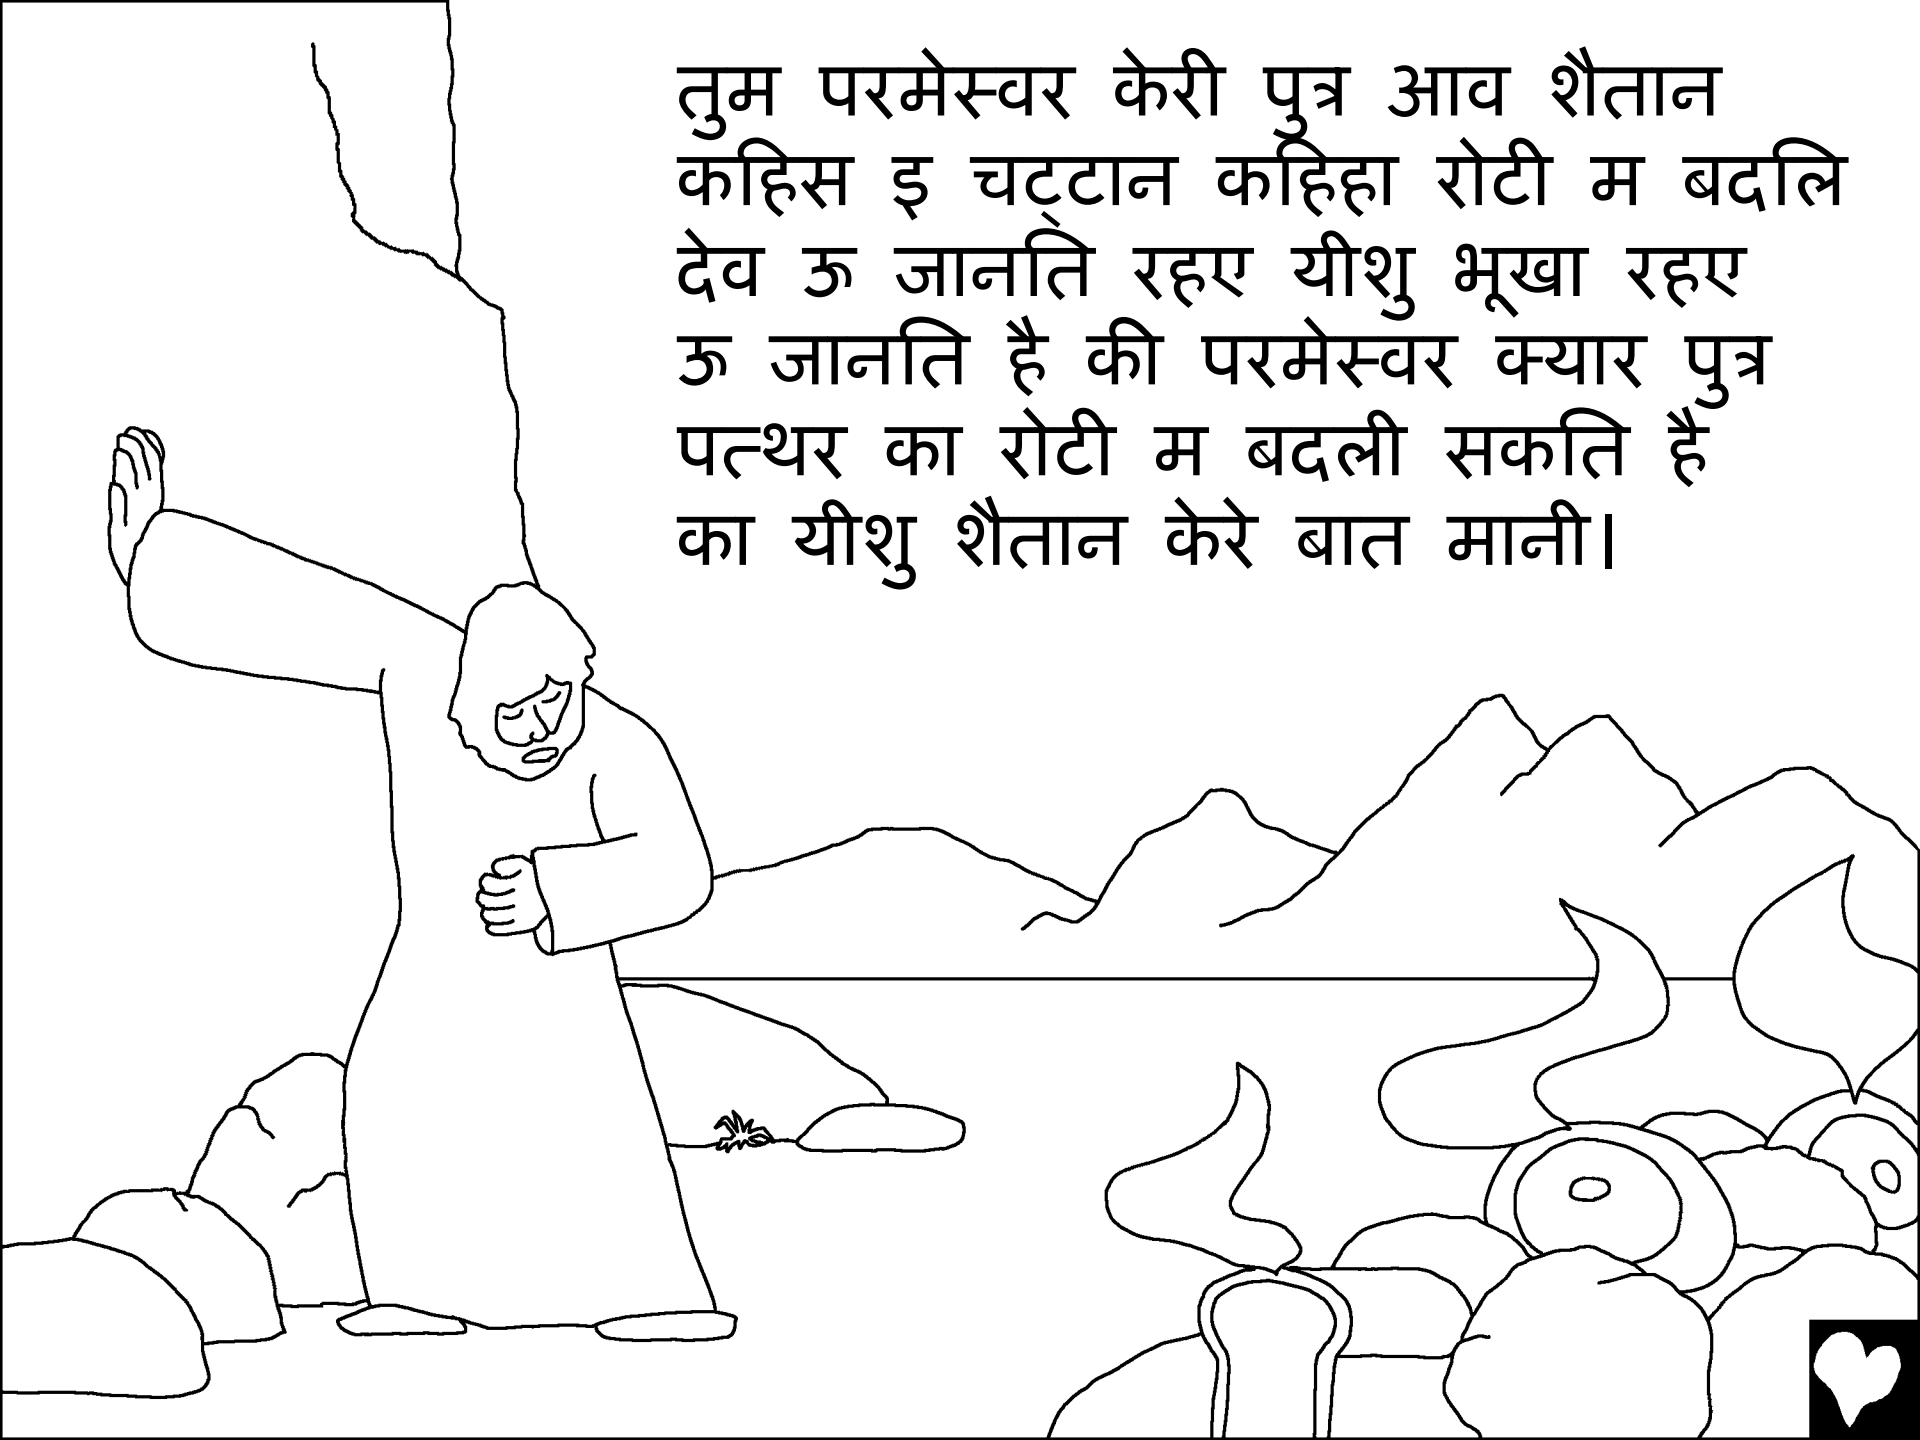 तुम परमेस्वर केरी पुत्र आव शैतान
कहिस इ चट्टान कहिहा रोटी म बदलि
देव ऊ जानति रहए यीशु भूखा रहए
ऊ जानति है की परमेस्वर क्यार पुत्र
पत्थर का रोटी म बदली सकति है
का यीशु शैतान केरे बात मानी।